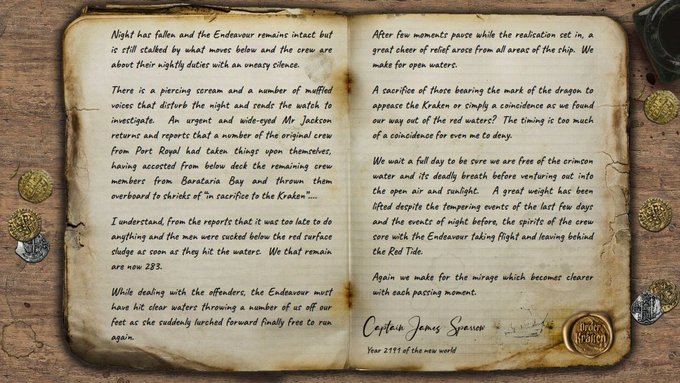 Night has fallen and the Endeavour remains intact but
is still stalked by what moves below and the crew are
about their nightly duties with an uneasy silence.
There is a piercing scream and a number of muffled
voices that disturb the night and sends the watch to
investigate. An urgent and wide-eyed Mr Jackson
returns and reports that a number of the original crew
from Port Royal had taken things upon themselves,
having accosted from below deck the remaining crew
members from Barataria Bay and thrown them
overboard to shrieks of "in sacrifice to the Kraken"....
I understand, from the reports that it was too late to do
anything and the men were sucked below the red surface
sludge as soon as they hit the waters. We that remain
are now 283.
While dealing with the offenders, the Endeavour must
have hit clear waters throwing a number of us off our
feet as she suddenly lurched forward finally free to run
again.
After few moments pause while the realisation set in, a
great cheer of relief arose from all areas of the ship. We
make for open waters.
A sacrifice of those bearing the mark of the dragon to
appease the Kraken or simply a coincidence as we found
our way out of the red waters? The timing is too much
of a coincidence for even me to deny.
We wait a full day to be sure we are free of the crimson
water and its deadly breath before venturing out into
the open air and sunlight. A great weight has been
lifted despite the tempering events of the last few days
and the events of night before, the spirits of the crew
sore with the Endeavour taking flight and leaving behind
the Red Tide.
Again we make for the mirage which becomes clearer
with each passing moment.
Captain James Sparrow
Year 2191 of the new world
Order
of the
Kraken